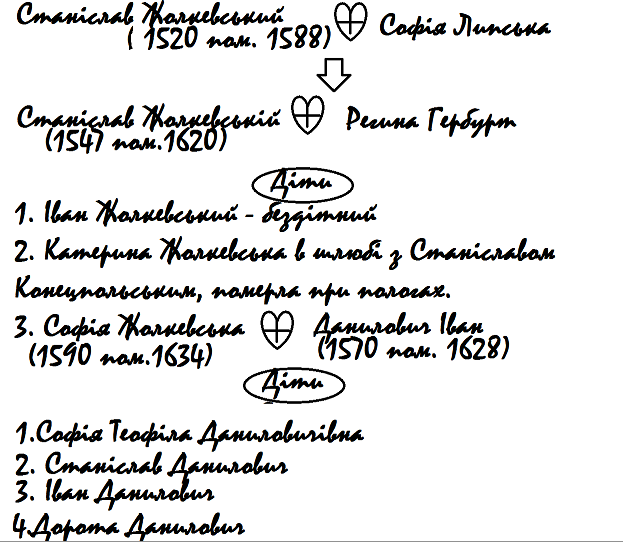 Станіслав Жолкевський
( 1520 пом. 1588) Софія Липська
Станіслав Жолкевській Регина Гербурт
(1547 пом.1620)
Діти
1. Іван Жолкевський - бездітний
2. Катерина Жолкевська в шлюбі з Станіславом
Конецпольським, померла при пологах.
3. Софія Жолкевська Данилович Іван
(1590 пом.1634) (1570 пом. 1628)
Діти
1.Софія Теофіла Даниловичівна
2. Станіслав Данилович
3. Іван Данилович
4.Дорота Данилович